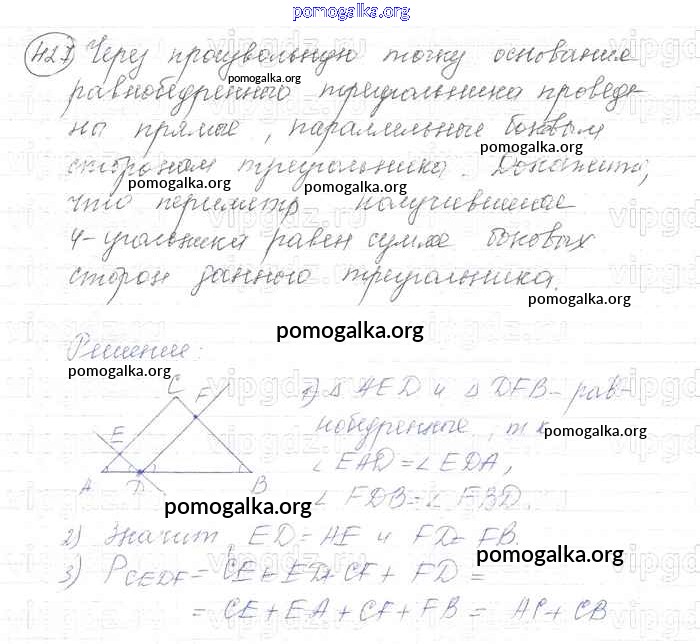 pomogalka.org
427 Через произвольную точку основания
pomogalka.org
равнобедренного треугольника проведе-
ны прямые, параллельные боковым
pomogalka.org
сторонам треугольника. Докажите,
pomogalka.org pomogalka.org
что периметр получившегося
4-угольника равен сумме боковых
сторон данного треугольника.
pomogalka.org
pomogalka.org
Решение:
pomogalka.org
C F
E
A D B
1) △ AED и △ DFB - рав-
нобедренные, т.к.
pomogalka.org
∠ EAD = ∠ EDA,
∠ FDB = ∠ FBD.
pomogalka.org
2) Значит, ED = AE и FD = FB.
pomogalka.org
3) P CEDF = CE + ED + CF + FD =
= CE + EA + CF + FB = AC + CB